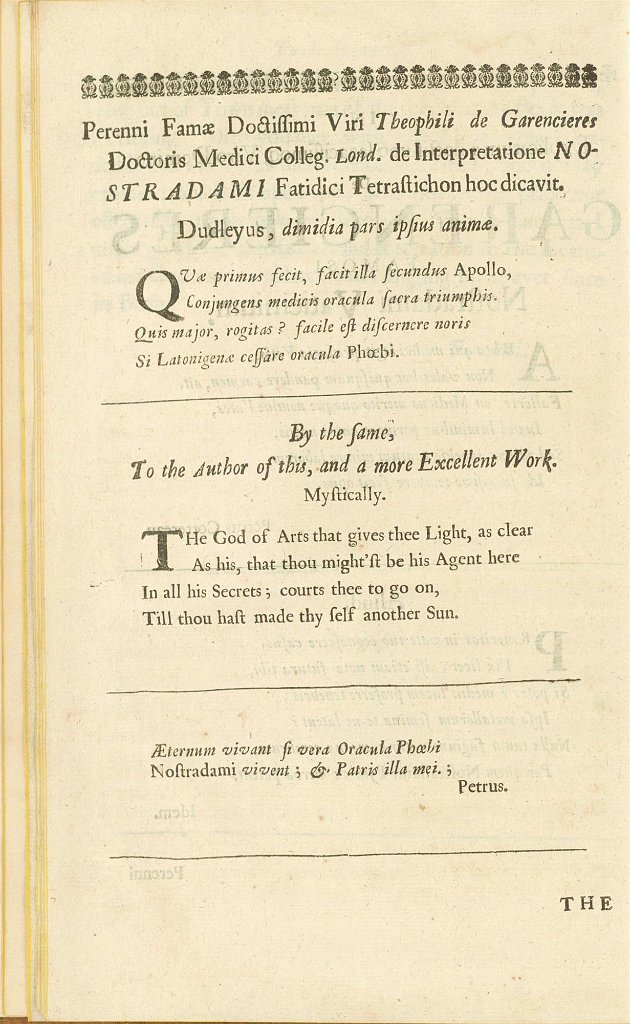 Perenni Famæ Doctiſſimi Viri Theophili de Garencieres
Doctoris Medici Colleg. Lond. de Interpretatione NO-
STRADAMI Fatidici Tetraſtichon hoc dicavit.
Dudleyus, dimidia pars ipſius animæ.
QVæ primus fecit, facit illa ſecundus Apollo,
Conjungens medicis oracula ſacra triumphis.
Quis major, rogitas? facile eſt diſcernere noris
Si Latonigenæ ceſſare oracula Phœbi.
By the ſame,
To the Author of this, and a more Excellent Work.
Myſtically.
THe God of Arts that gives thee Light, as clear
As his, that thou might'ſt be his Agent here
In all his Secrets; courts thee to go on,
Till thou haſt made thy ſelf another Sun.
Æternum vivant ſi vera Oracula Phœbi
Noſtradami vivent; & Patris illa mei.;
Petrus.
THE